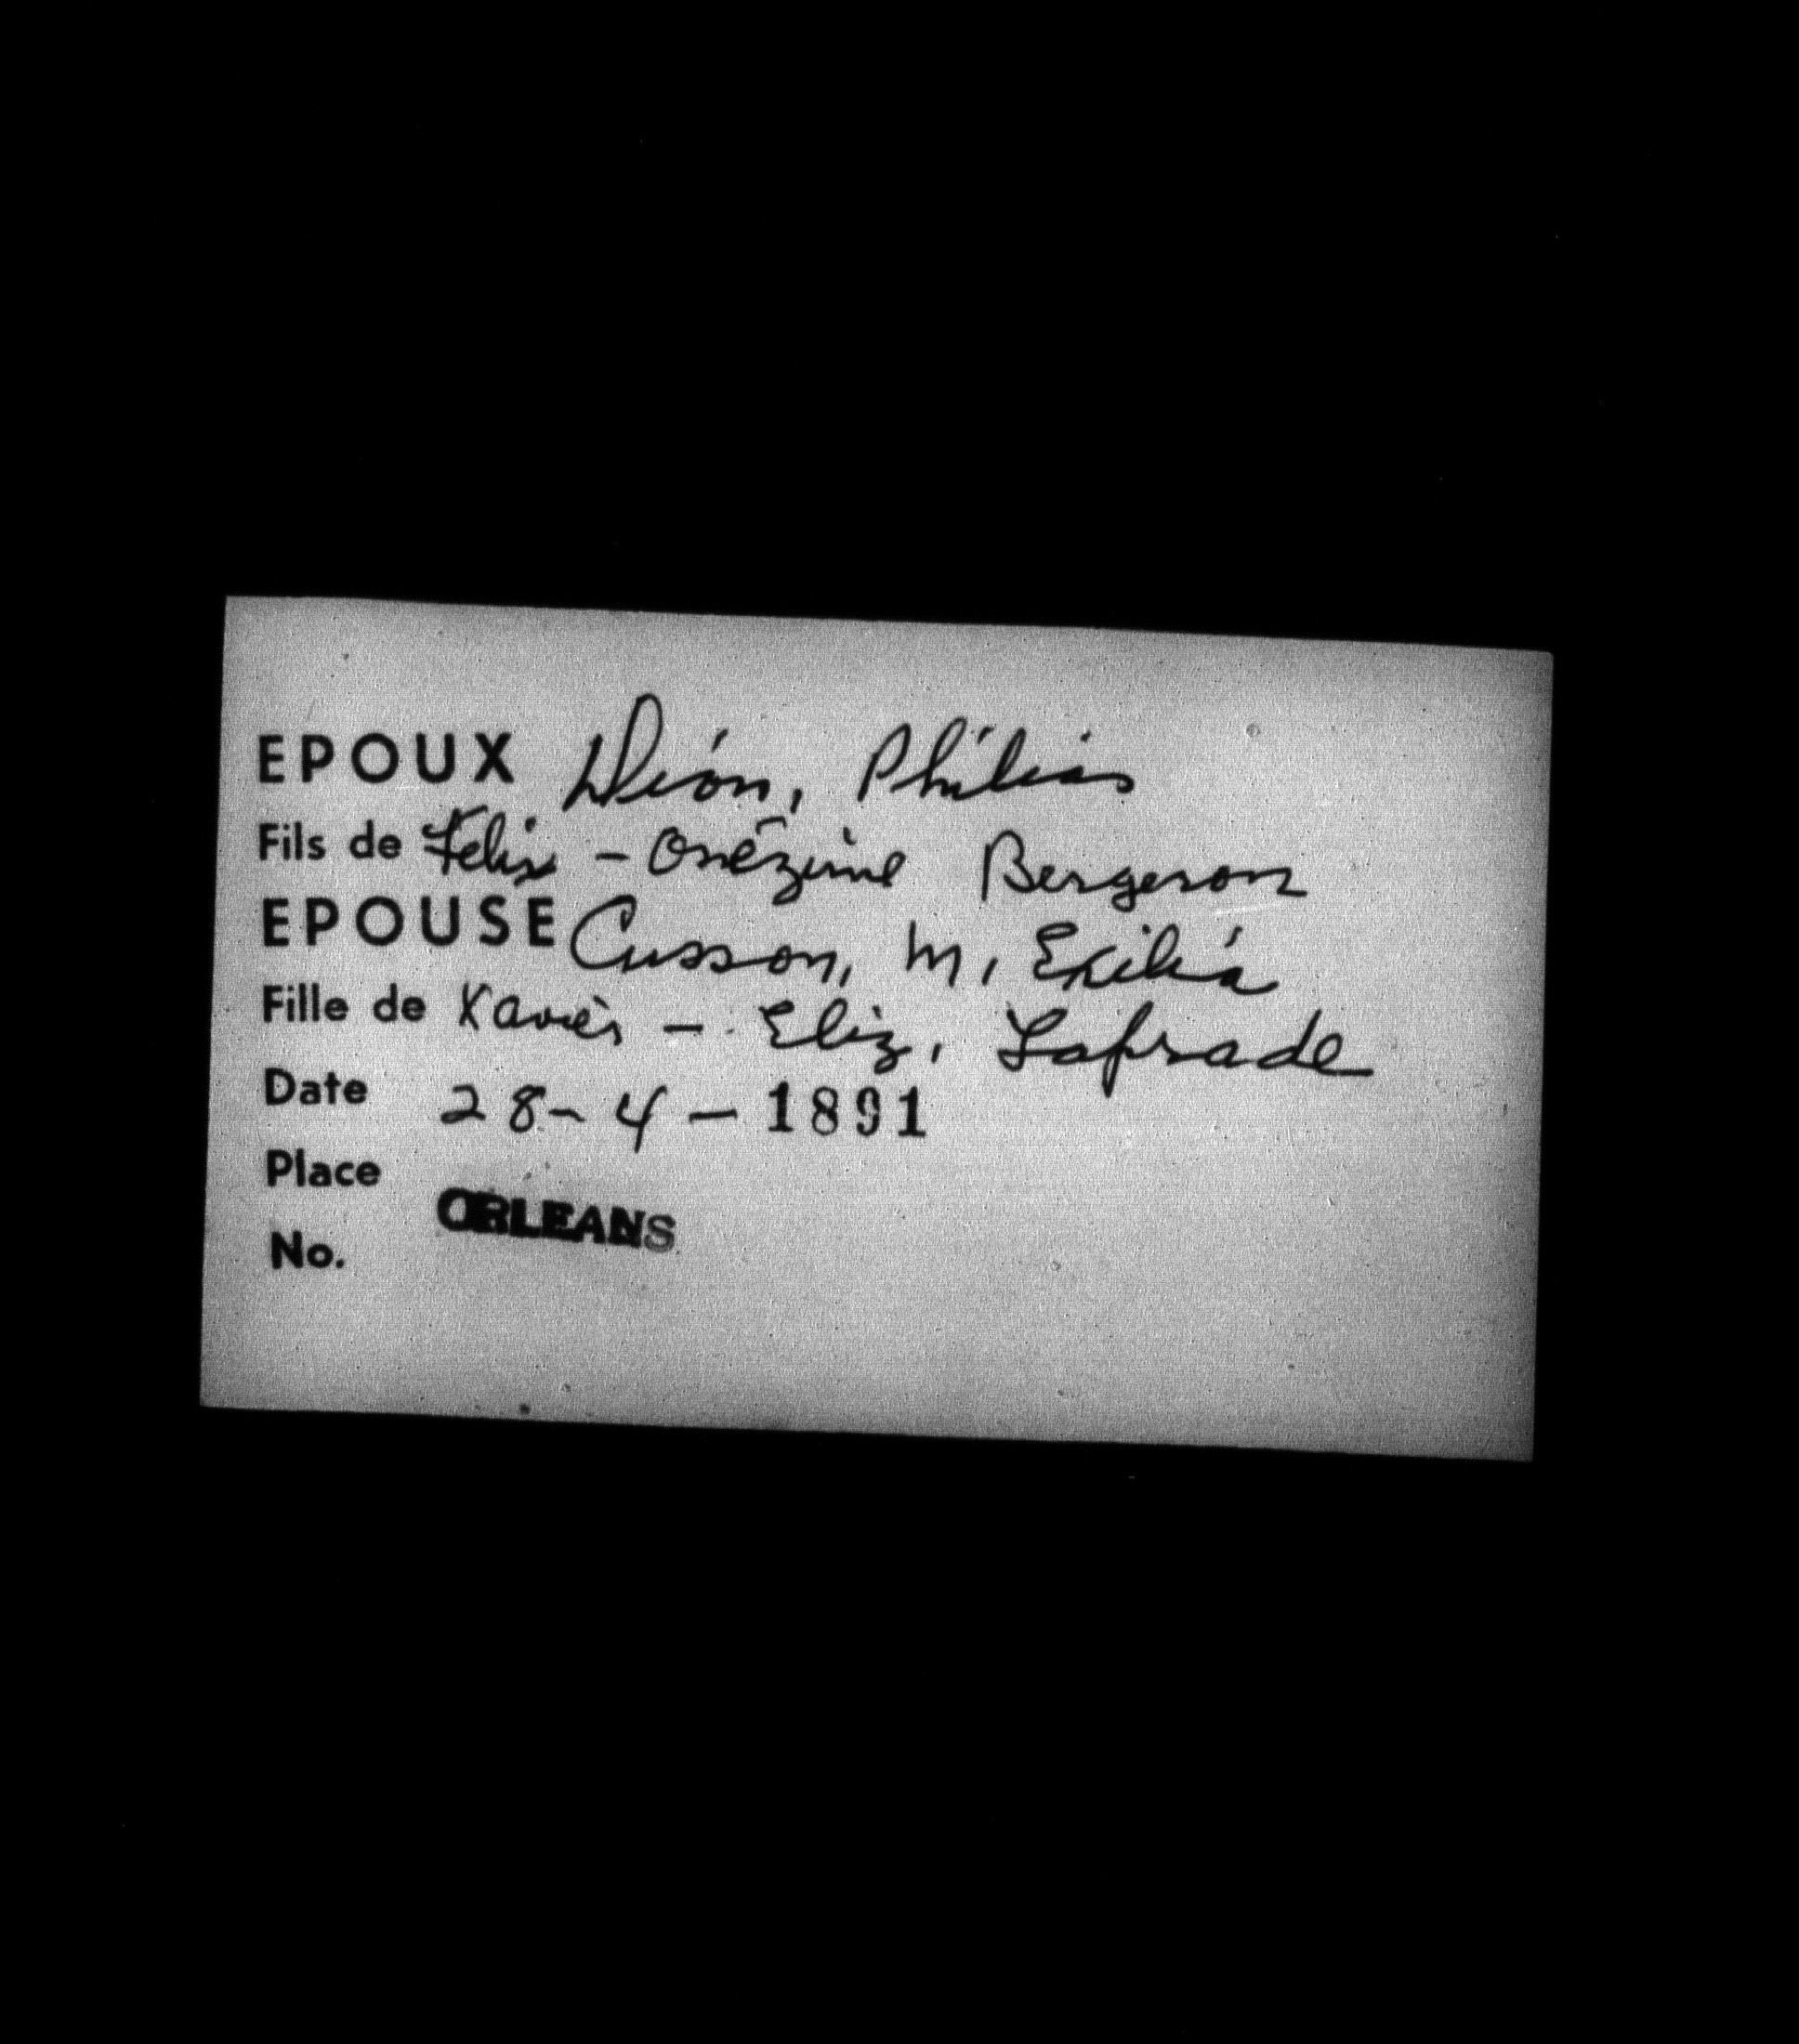 EPOUX Dion, Philias
Fils de Felix - Onézime Bergeron
EPOUSE Cusson, M, Exilia
Fille de Xavier - Eliz, Laprade
Date 28-4-1891
Place
ORLEANS
No.